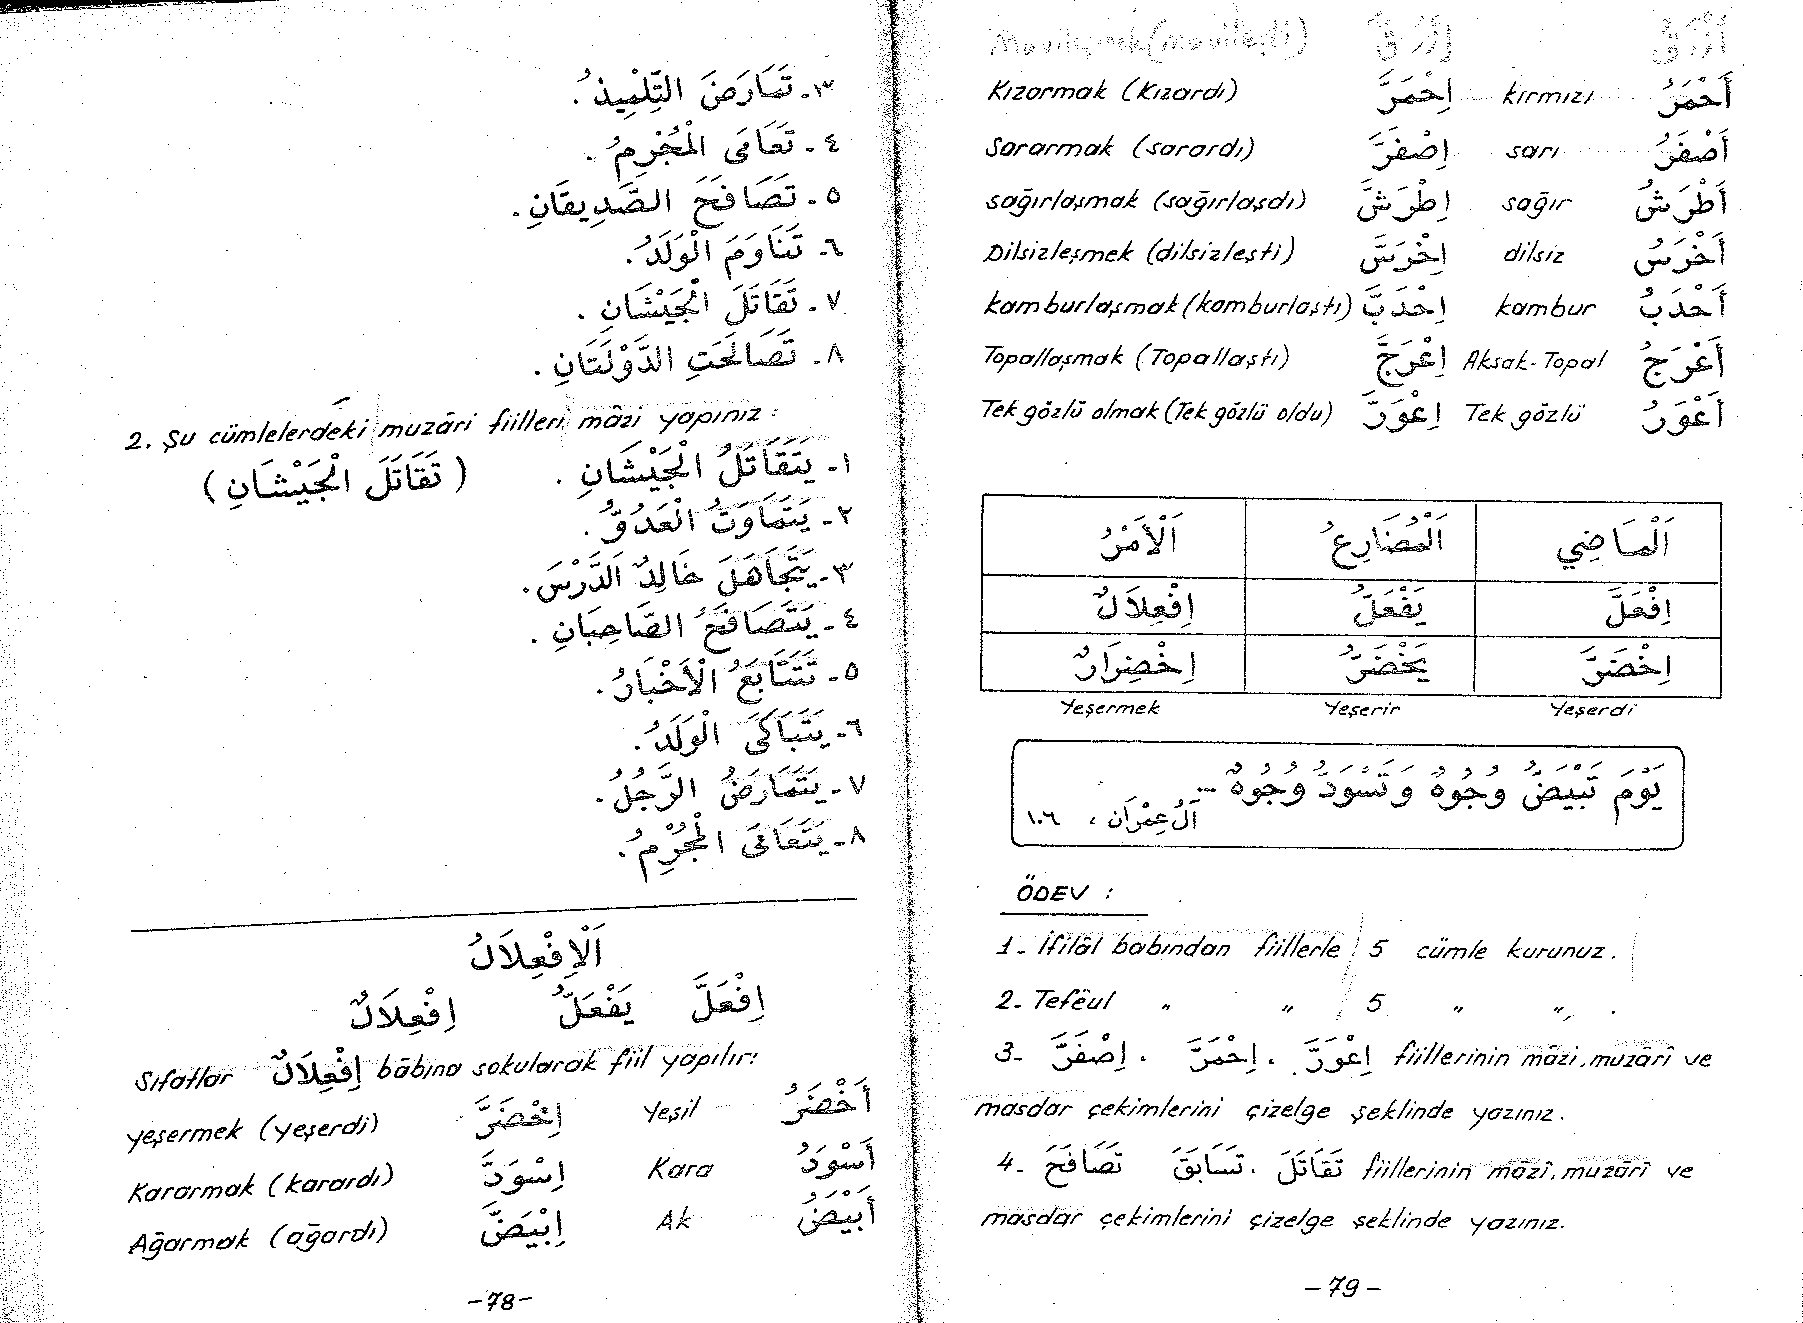 ٣ـ تَمَارَضَ التِّلْمِيذُ.
٤ـ تَعَامَى الْمُجْرِمُ.
٥ـ تَصَافَحَ الصَّدِيقَانِ.
٦ـ تَنَاوَمَ الْوَلَدُ.
٧ـ تَقَاتَلَ الْجَيْشَانِ.
٨ـ تَصَالَحَتِ الدَّوْلَتَانِ.
2. Şu cümlelerdeki muzâri fiilleri mâzi yapınız:
١ـ يَتَقَاتَلُ الْجَيْشَانِ. (تَقَاتَلَ الْجَيْشَانِ)
٢ـ يَتَمَاوَتُ الْعَدُوُّ.
٣ـ يَتَجَاهَلَ خَالِدٌ الَدَّرْسَ.
٤ـ يَتَصَافَحُ الصَّاحِبَانِ.
٥ـ تَتَتَابَعُ الْأَخْبَارُ.
٦ـ يَتَبَاكَى الْوَلَدُ.
٧ـ يَتَمَارَضُ الرَّجُلُ.
٨ـ يَتَعَامَى الْمُجْرِمُ.
اَلْإِفْعِلَالُ
اِفْعَلَّ يَفْعَلُّ اِفْعِلَالٌ
Sıfatlar اِفْعِلَالٌ bâbına sokularak fiil yapılır:
أَخْضَرُ Yeşil اِخْضَرَّ yeşermek (yeşerdi)
أَسْوَدُ Kara اِسْوَدَّ Kararmak (karardı)
أَبْيَضُ Ak اِبْيَضَّ Ağarmak (ağardı)
-78-
أَزْرَقُ اِزْرَقَّ Mavileşmek (mavileşti)
أَحْمَرُ kırmızı اِحْمَرَّ Kızarmak (Kızardı)
أَصْفَرُ sarı اِصْفَرَّ Sararmak (sarardı)
أَطْرَشُ sağır اِطْرَشَّ sağırlaşmak (sağırlaşdı)
أَخْرَسُ dilsiz اِخْرَسَّ Dilsizleşmek (dilsizleşti)
أَحْدَبُ kambur اِحْدَبَّ kamburlaşmak (kamburlaştı)
أَعْرَجُ Aksak-Topal اِعْرَجَّ Topallaşmak (Topallaştı)
أَعْوَرُ Tek gözlü اِعْوَرَّ Tek gözlü olmak (Tek gözlü oldu)
اَلْمَاضِي اَلْمُضَارِعُ اَلْأَمْرُ
اِفْعَلَّ يَفْعَلُّ اِفْعِلَالٌ
اِخْضَرَّ يَخْضَرُّ اِخْضِرَارٌ
Yeşerdi Yeşerir Yeşermek
يَوْمَ تَبْيَضُّ وُجُوهٌ وَتَسْوَدُّ وُجُوهٌ ...
آلُ عِمْرَان ، ١٠٦
ÖDEV :
1- İfilâl babından fiillerle 5 cümle kurunuz.
2- Tefêul " " 5 " " .
3- اِصْفَرَّ . اِحْمَرَّ . اِعْوَرَّ fiillerinin mâzi, muzârî ve
masdar çekimlerini çizelge şeklinde yazınız.
4- تَصَافَحَ تَسَابَقَ . تَقَاتَلَ fiillerinin mâzî, muzârî ve
masdar çekimlerini çizelge şeklinde yazınız.
-79-